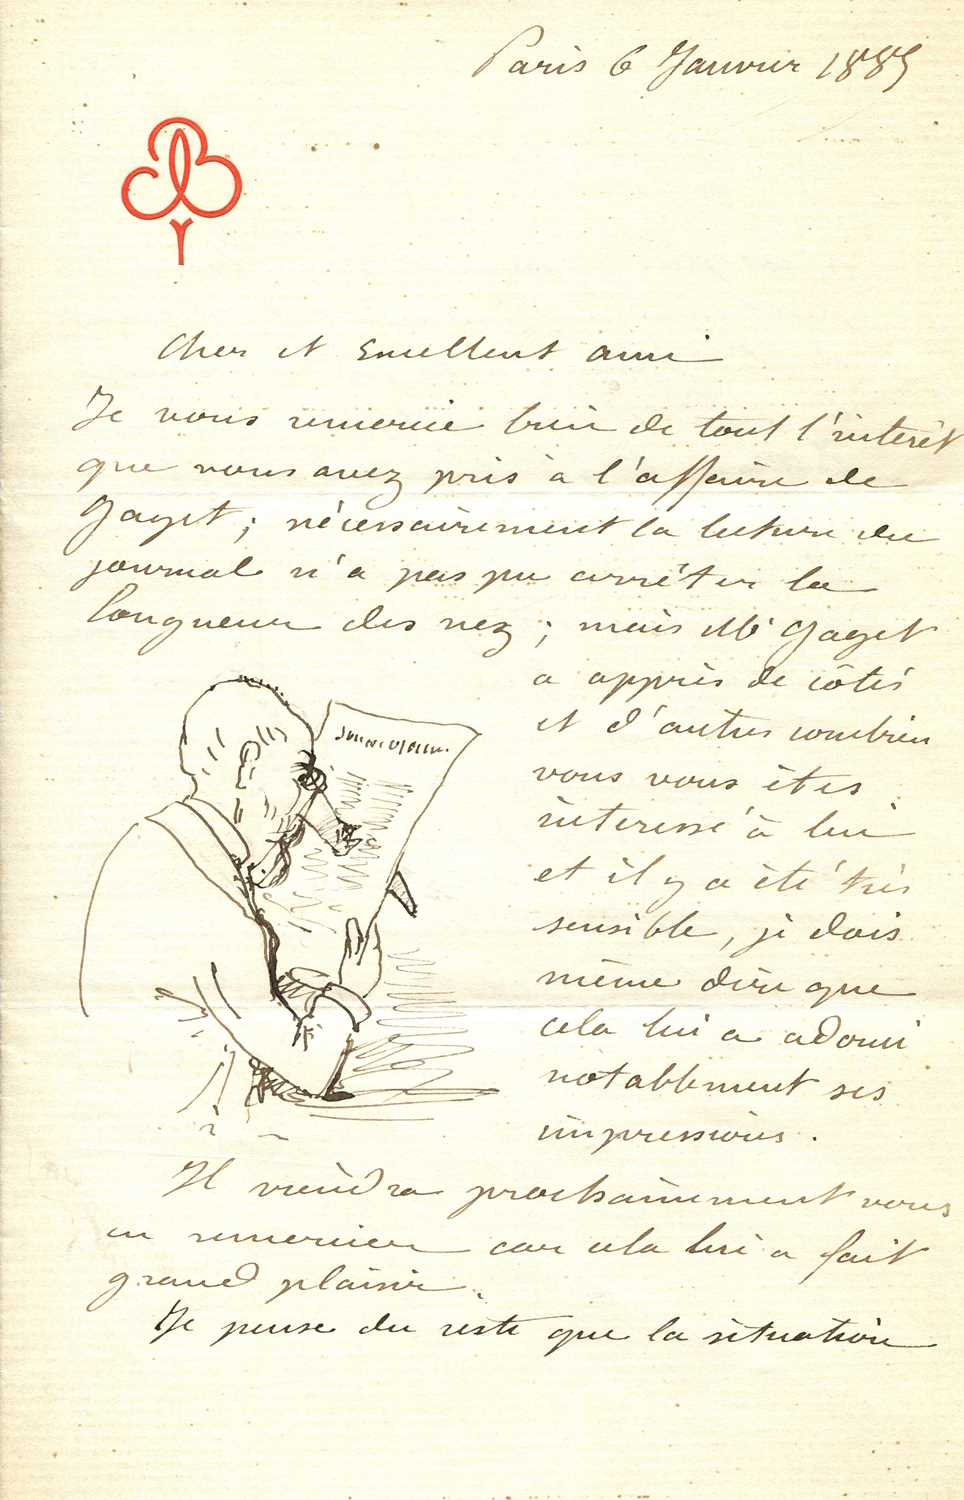 Paris 6 Janvier 1885
Cher et Excellent ami
Je vous remercie bien de tout l'intérêt
que vous avez pris à l'affaire de
Gaget ; nécessairement la lecture du
journal n'a pas pu arrêter la
longueur des nez ; mais Mr Gaget
a appris de côtés
et d'autres combien
vous vous êtes
interessé à lui
et il y a été très
sensible, je dois
même dire que
cela lui a adouci
notablement ses
impressions.
Il viendra prochainement vous
en remercier car cela lui a fait
grand plaisir.
Je pense du reste que la situation